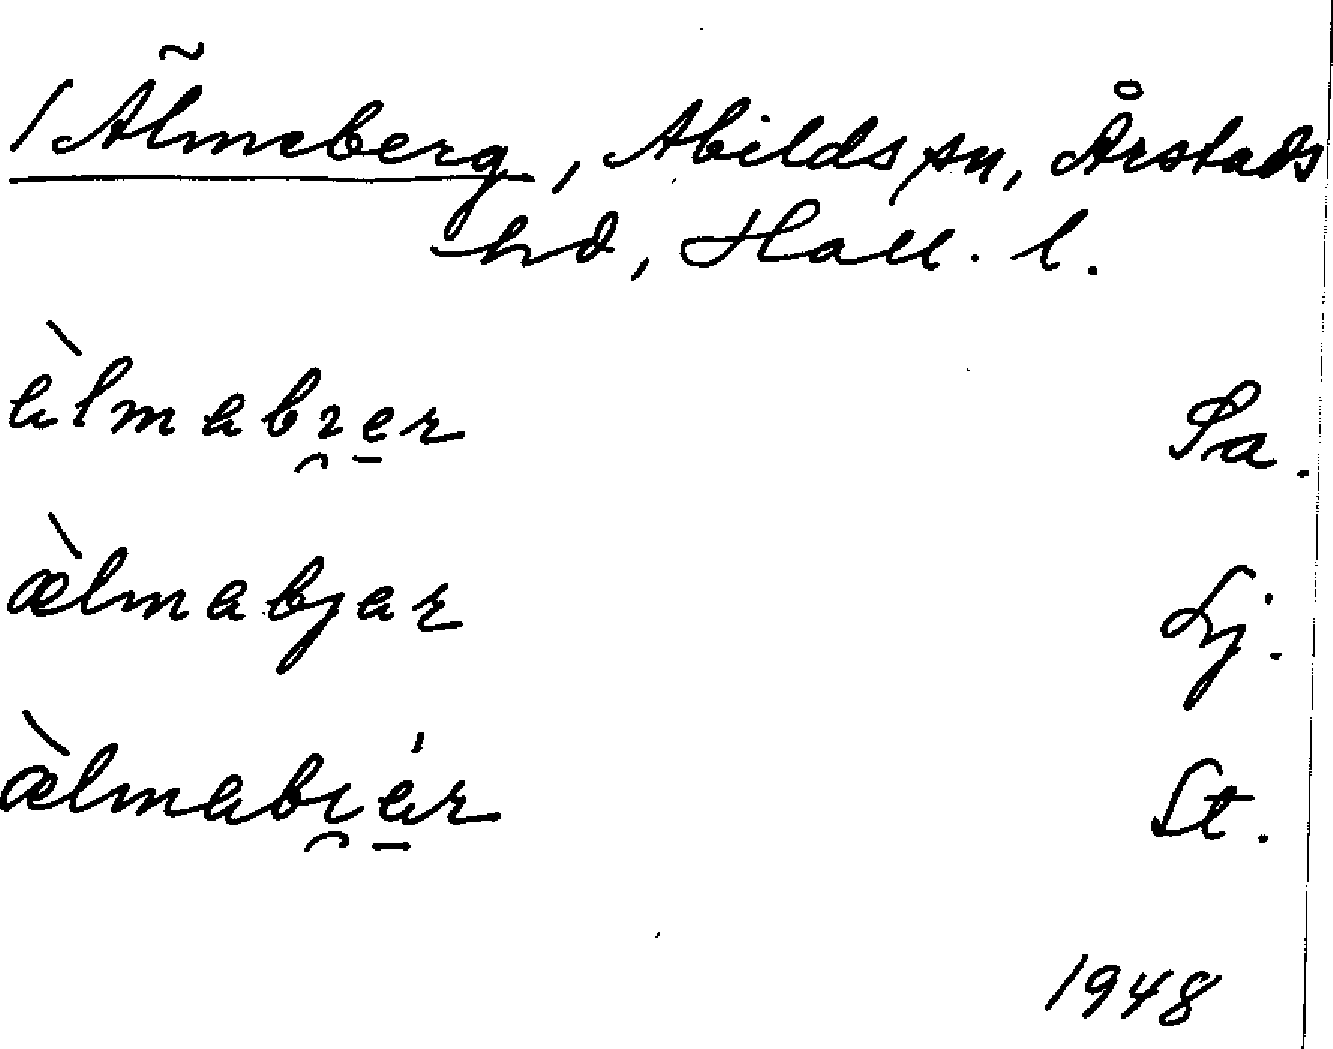 1 Älmeberg, Abilds sn, Årstads
hd, Hall. l.
àlmabı̯e̱r Sa.
æ̀lmabjar Lj.
æ̀lmabı̯á̱r St.
1948